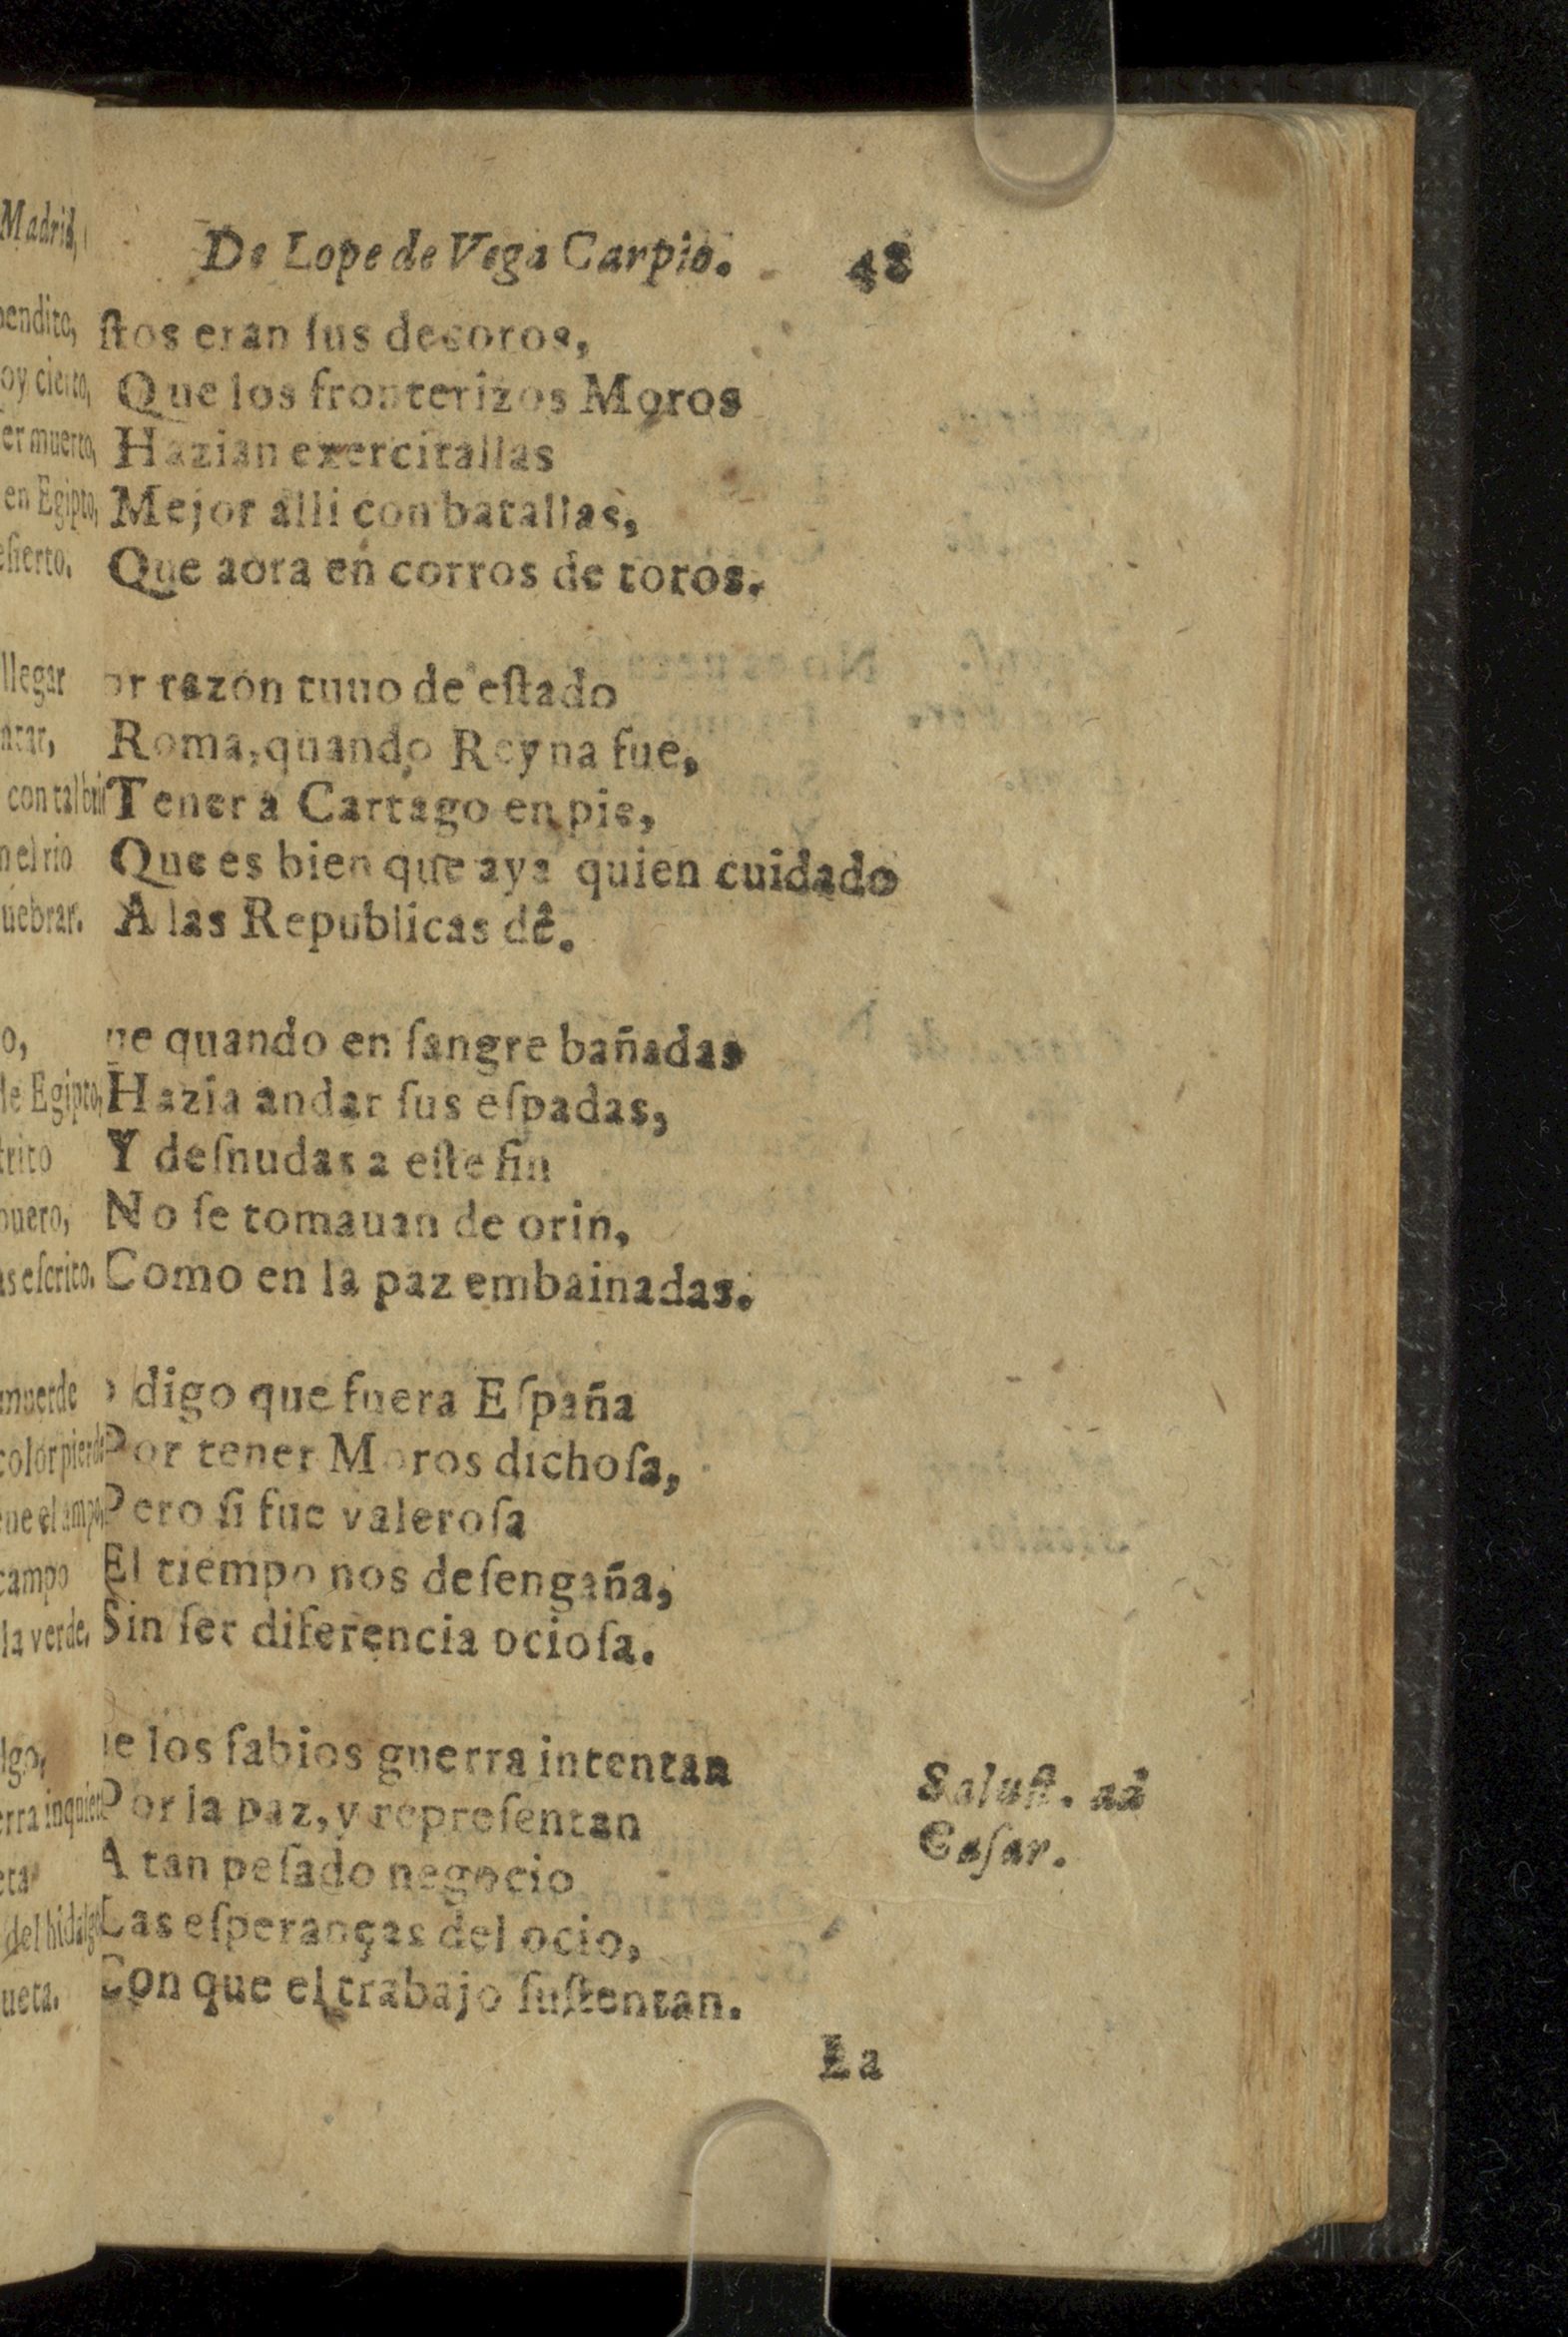 De Lope de Vega Carpio. 48
ſtos eran ſus decoros,
Que los fronterizos Moros
Hazian exercitallas
Mejor alli con batallas,
Que aora en corros de toros.
or razon tuuo de eſtado
Roma, quando Reyna fue,
Tener a Cartago en pie,
Que es bien que aya quien cuidado
A las Republicas dê.
ue quando en ſangre bañadas
Hazia andar ſus eſpadas,
Y deſnudas a eſte fin
No ſe tomauan de orin,
Como en la paz embainadas.
o digo que fuera Eſpaña
Por tener Moros dichoſa,
Pero ſi fue valeroſa
El tiempo nos deſengaña,
Sin ſer diferencia ocioſa.
ue los ſabios guerra intentan
Por la paz, y repreſentan
A tan peſado negocio
Las eſperanças del ocio,
Con que el trabajo ſuſtentan.
Saluſt. ad
Ceſar.
La
Madrid,
oy cierto,
er muerto,
en Egipto,
eſierto.
llegar
n el rio
uebrar.
o,
de Egipto,
trito
as eſcrito.
muerde
color pierde
campo
la verde.
lgo,
erra inquieta
eta
del hidalgo
ueta.